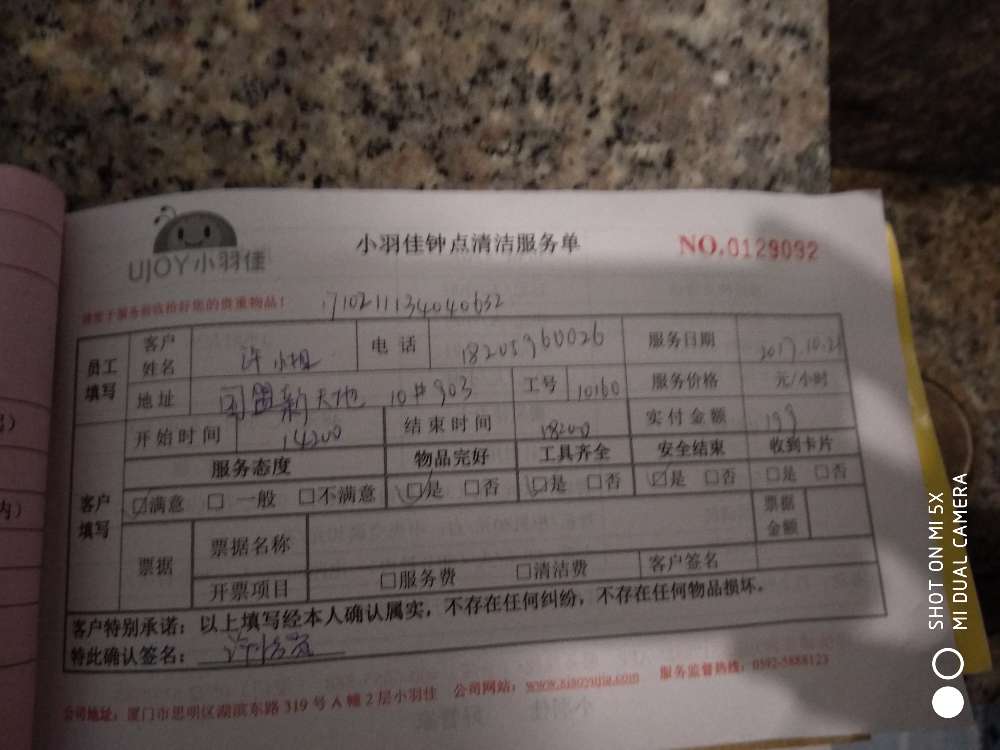 UJOY小羽佳
小羽佳钟点清洁服务单
NO.0129092
请您于服务前收拾好您的贵重物品！
1710211134040632
员工填写 客户姓名 许小姐 电话 18205960026 服务日期 2017.10.21
地址 国盟新天地 10#903 工号 10160 服务价格 元/小时
开始时间 14200 结束时间 18200 实付金额 199
客户填写 服务态度 物品完好 工具齐全 安全结束 收到卡片
☑满意 □一般 □不满意 ☑是 □否 ☑是 □否 ☑是 □否 □是 □否
票据 票据名称 票据金额
开票项目 □服务费 □清洁费 客户签名
客户特别承诺：以上填写经本人确认属实，不存在任何纠纷，不存在任何物品损坏。
特此确认签名：
公司地址：厦门市思明区湖滨东路 319 号 A 幢 2 层小羽佳 公司网站：www.xiaoyujia.com 服务监督热线：0592-5888123
SHOT ON MI 5X
MI DUAL CAMERA